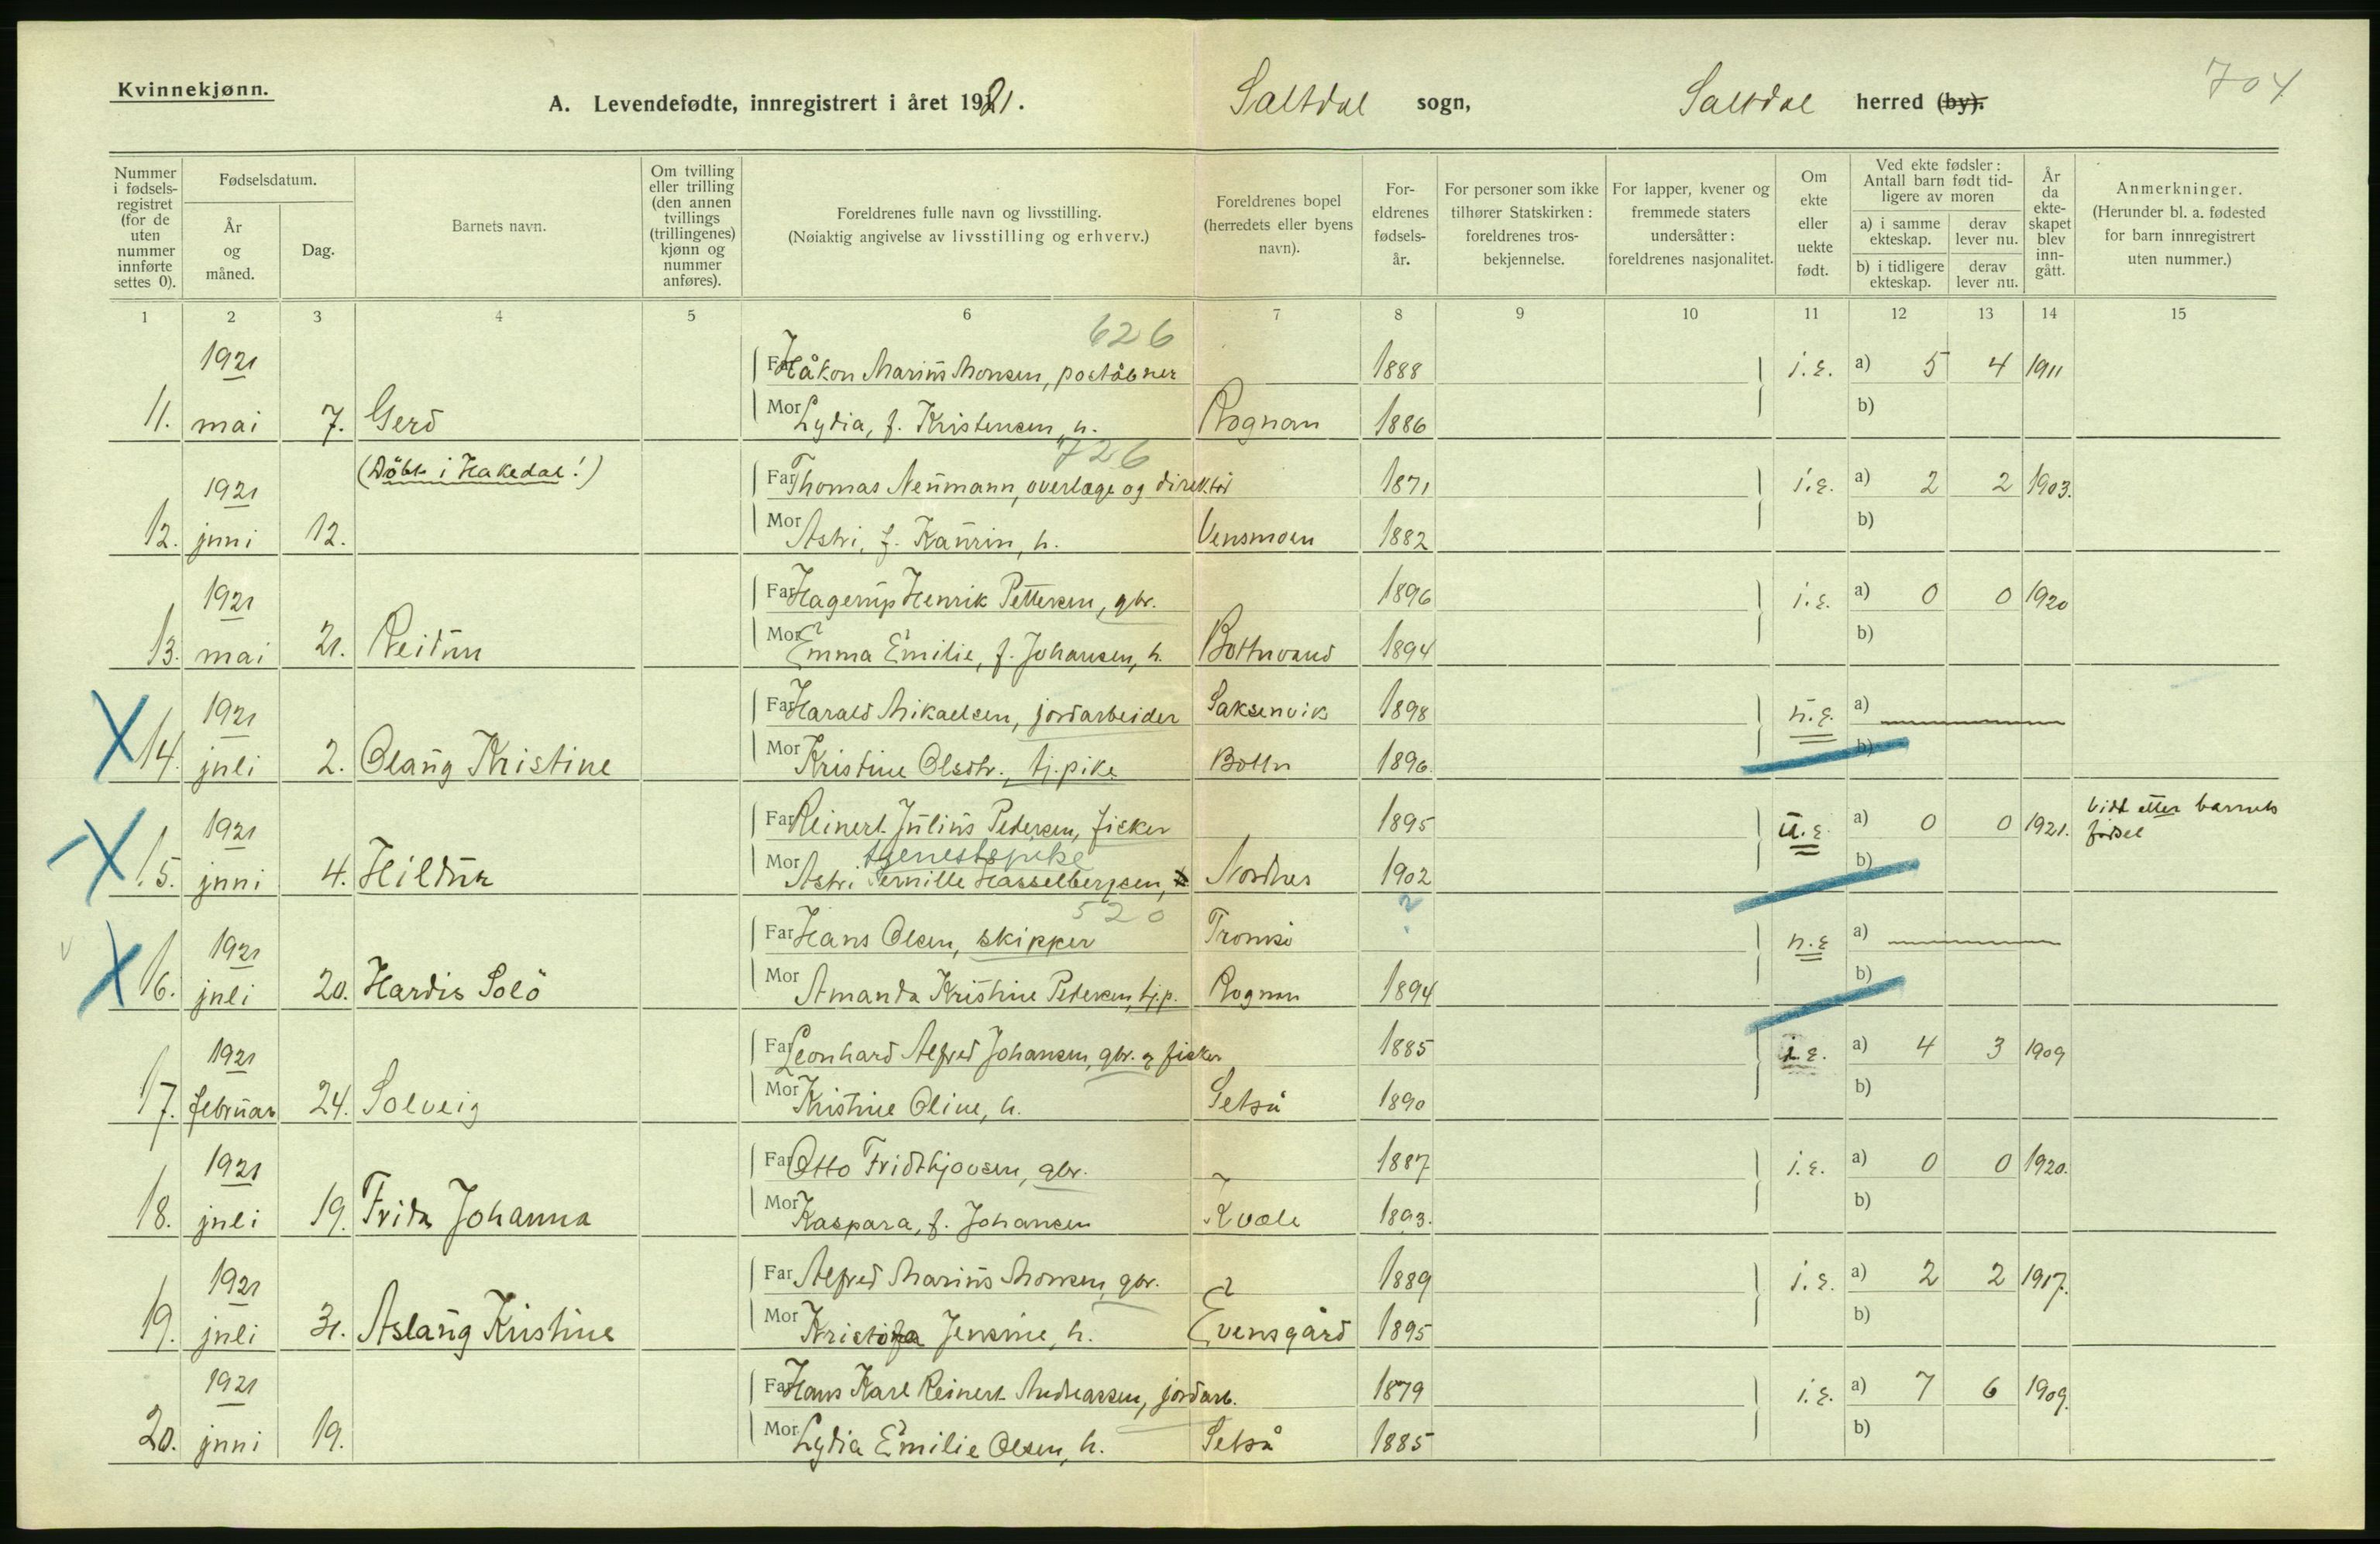 Kvinnekjønn.
A. Levendefødte, innregistrert i året 1921. Saltdal sogn, Saltdal herred (by). 704
Nummer i fødsels-registret (for de uten nummer innførte settes 0).
Fødselsdatum.
År og måned.
Dag.
Barnets navn.
Om tvilling eller trilling (den annen tvillings (trillingenes) kjønn og nummer anføres).
Foreldrenes fulle navn og livsstilling.
(Nøiaktig angivelse av livsstilling og erhverv.)
Foreldrenes bopel (herredets eller byens navn).
For-eldrenes fødsels-år.
For personer som ikke tilhører Statskirken: foreldrenes tros-bekjennelse.
For lapper, kvener og fremmede staters undersåtter: foreldrenes nasjonalitet.
Om ekte eller uekte født.
Ved ekte fødsler: Antall barn født tid-ligere av moren
a) i samme ekteskap. derav lever nu.
b) i tidligere ekteskap. derav lever nu.
År da ekte-skapet blev inn-gått.
Anmerkninger.
(Herunder bl. a. fødested for barn innregistrert uten nummer.)
1 2 3 4 5 6 7 8 9 10 11 12 13 14 15
626
1921 Far Håkon Marius Monsen, poståbner 1888 i.e. a) 5 4 1911
11. mai 7. Gerd Mor Lydia, f. Kristensen, h. Rognan 1886 b)
726
(Döbt i Hakedal!)
1921 Far Thomas Neumann, overlæge og direktør 1871 i.e. a) 2 2 1903.
12. juni 12. Mor Astri, f. Kaurin, h. Vensmoen 1882 b)
1921 Far Hagerup Henrik Pettersen, gbr. 1896 i.e. a) 0 0 1920
13. mai 21. Reidun Mor Emma Emilie, f. Johansen, h. Bottnvand 1894 b)
1921 Far Harald Mikaelsen, jordarbeider Saksenvik 1898 u.e. a)
14. juli 2. Olaug Kristine Mor Kristine Olsdtr., tj.pike Bottn 1896. b)
1921 Far Reinert Julius Pedersen, fisker 1895 u.e. a) 0 0 1921. Vidt etter barnets
fødsel
tjenestepike
15. juni 4. Hildur Mor Astri Pernille Hasselbergsen, Nordnes 1902 b)
520
1921 Far Hans Olsen, skipper Tromsö ? u.e a)
16. juli 20. Hardis Solö Mor Amanda Kristine Pedersen, tj.p. Rognan 1894 b)
1921 Far Leonhard Alfred Johansen, gbr. og fisker 1885 i.e. a) 4 3 1909
17. februar 24. Solveig Mor Kristine Oline, h. Setså 1890 b)
1921 Far Otto Fridthjovsen, gbr. 1887 i.e. a) 0 0 1920.
18. juli 19. Frida Johanna Mor Kaspara, f. Johansen Kvæle 1893. b)
1921 Far Alfred Marius Monsen, gbr. 1889 i.e. a) 2 2 1917.
19. juli 31. Aslaug Kristine Mor Kristofa Jensine, h. Evensgård 1895 b)
1921 Far Hans Karl Reinert Andreassen, jordarb. 1879 i.e. a) 7 6 1909.
20. juni 19. Mor Lydia Emilie Olsen, h. Setså 1885 b)